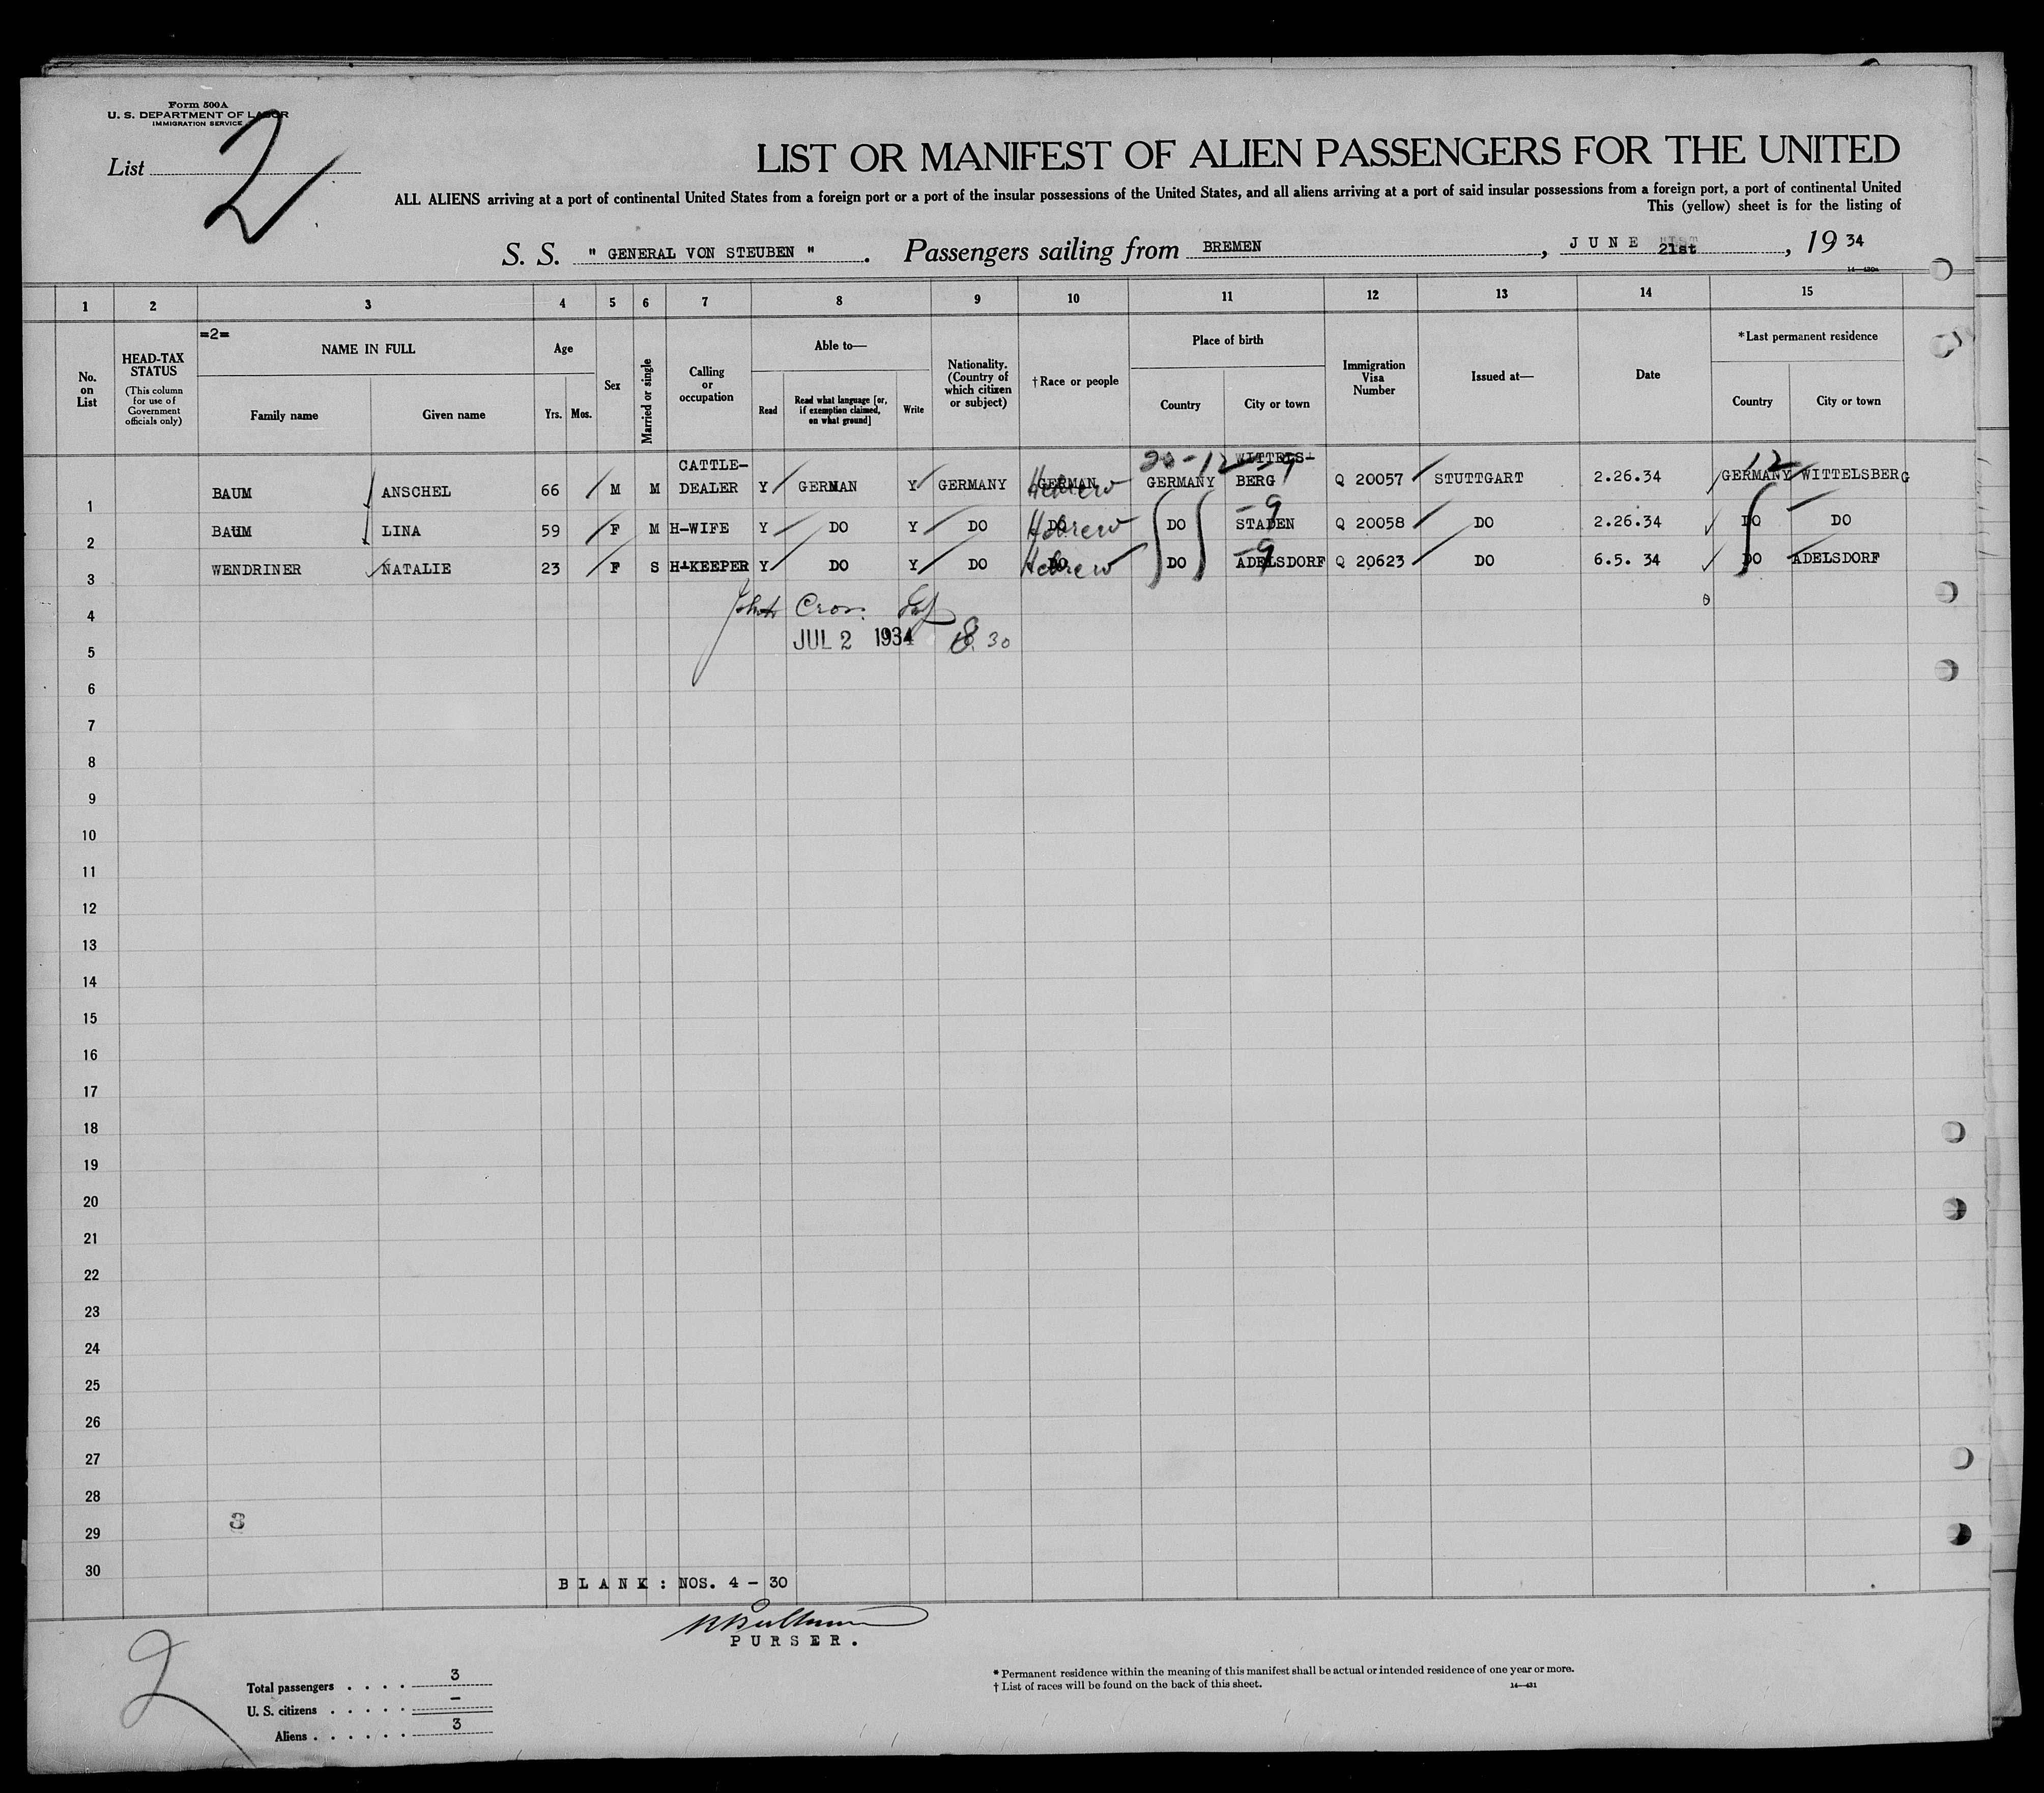 Form 500A
U. S. DEPARTMENT OF LABOR
IMMIGRATION SERVICE
List 2
LIST OR MANIFEST OF ALIEN PASSENGERS FOR THE UNITED
ALL ALIENS arriving at a port of continental United States from a foreign port or a port of the insular possessions of the United States, and all aliens arriving at a port of said insular possessions from a foreign port, a port of continental United
This (yellow) sheet is for the listing of
S. S. " GENERAL VON STEUBEN ". Passengers sailing from BREMEN, JUNE 21st, 19 34
1 2 3 4 5 6 7 8 9 10 11 12 13 14 15
No. on List
HEAD-TAX STATUS
(This column for use of Government officials only)
=2=
NAME IN FULL
Family name Given name
Age
Yrs. Mos.
Sex
Married or single
Calling or occupation
Able to—
Read
Read what language [or, if exemption claimed, on what ground]
Write
Nationality. (Country of which citizen or subject)
†Race or people
Place of birth
Country City or town
Immigration Visa Number
Issued at—
Date
*Last permanent residence
Country City or town
20-12-9 12
1 BAUM ANSCHEL 66 M M CATTLE-DEALER Y GERMAN Y GERMANY GERMAN Hebrew GERMANY WITTELS-BERG Q 20057 STUTTGART 2.26.34 GERMANY WITTELSBERG
2 BAUM LINA 59 F M H-WIFE Y DO Y DO DO Hebrew DO STADEN -9 Q 20058 DO 2.26.34 DO DO
3 WENDRINER NATALIE 23 F S H-KEEPER Y DO Y DO DO Hebrew DO ADELSDORF -9 Q 20623 DO 6.5. 34 DO ADELSDORF
4
JUL 2 1934 8.30
5
6
7
8
9
10
11
12
13
14
15
16
17
18
19
20
21
22
23
24
25
26
27
28
29
3
30
BLANK: NOS. 4 - 30
PURSER.
2
Total passengers . . . . 3
U. S. citizens . . . . . –
Aliens . . . . . . 3
* Permanent residence within the meaning of this manifest shall be actual or intended residence of one year or more.
† List of races will be found on the back of this sheet.
14—431